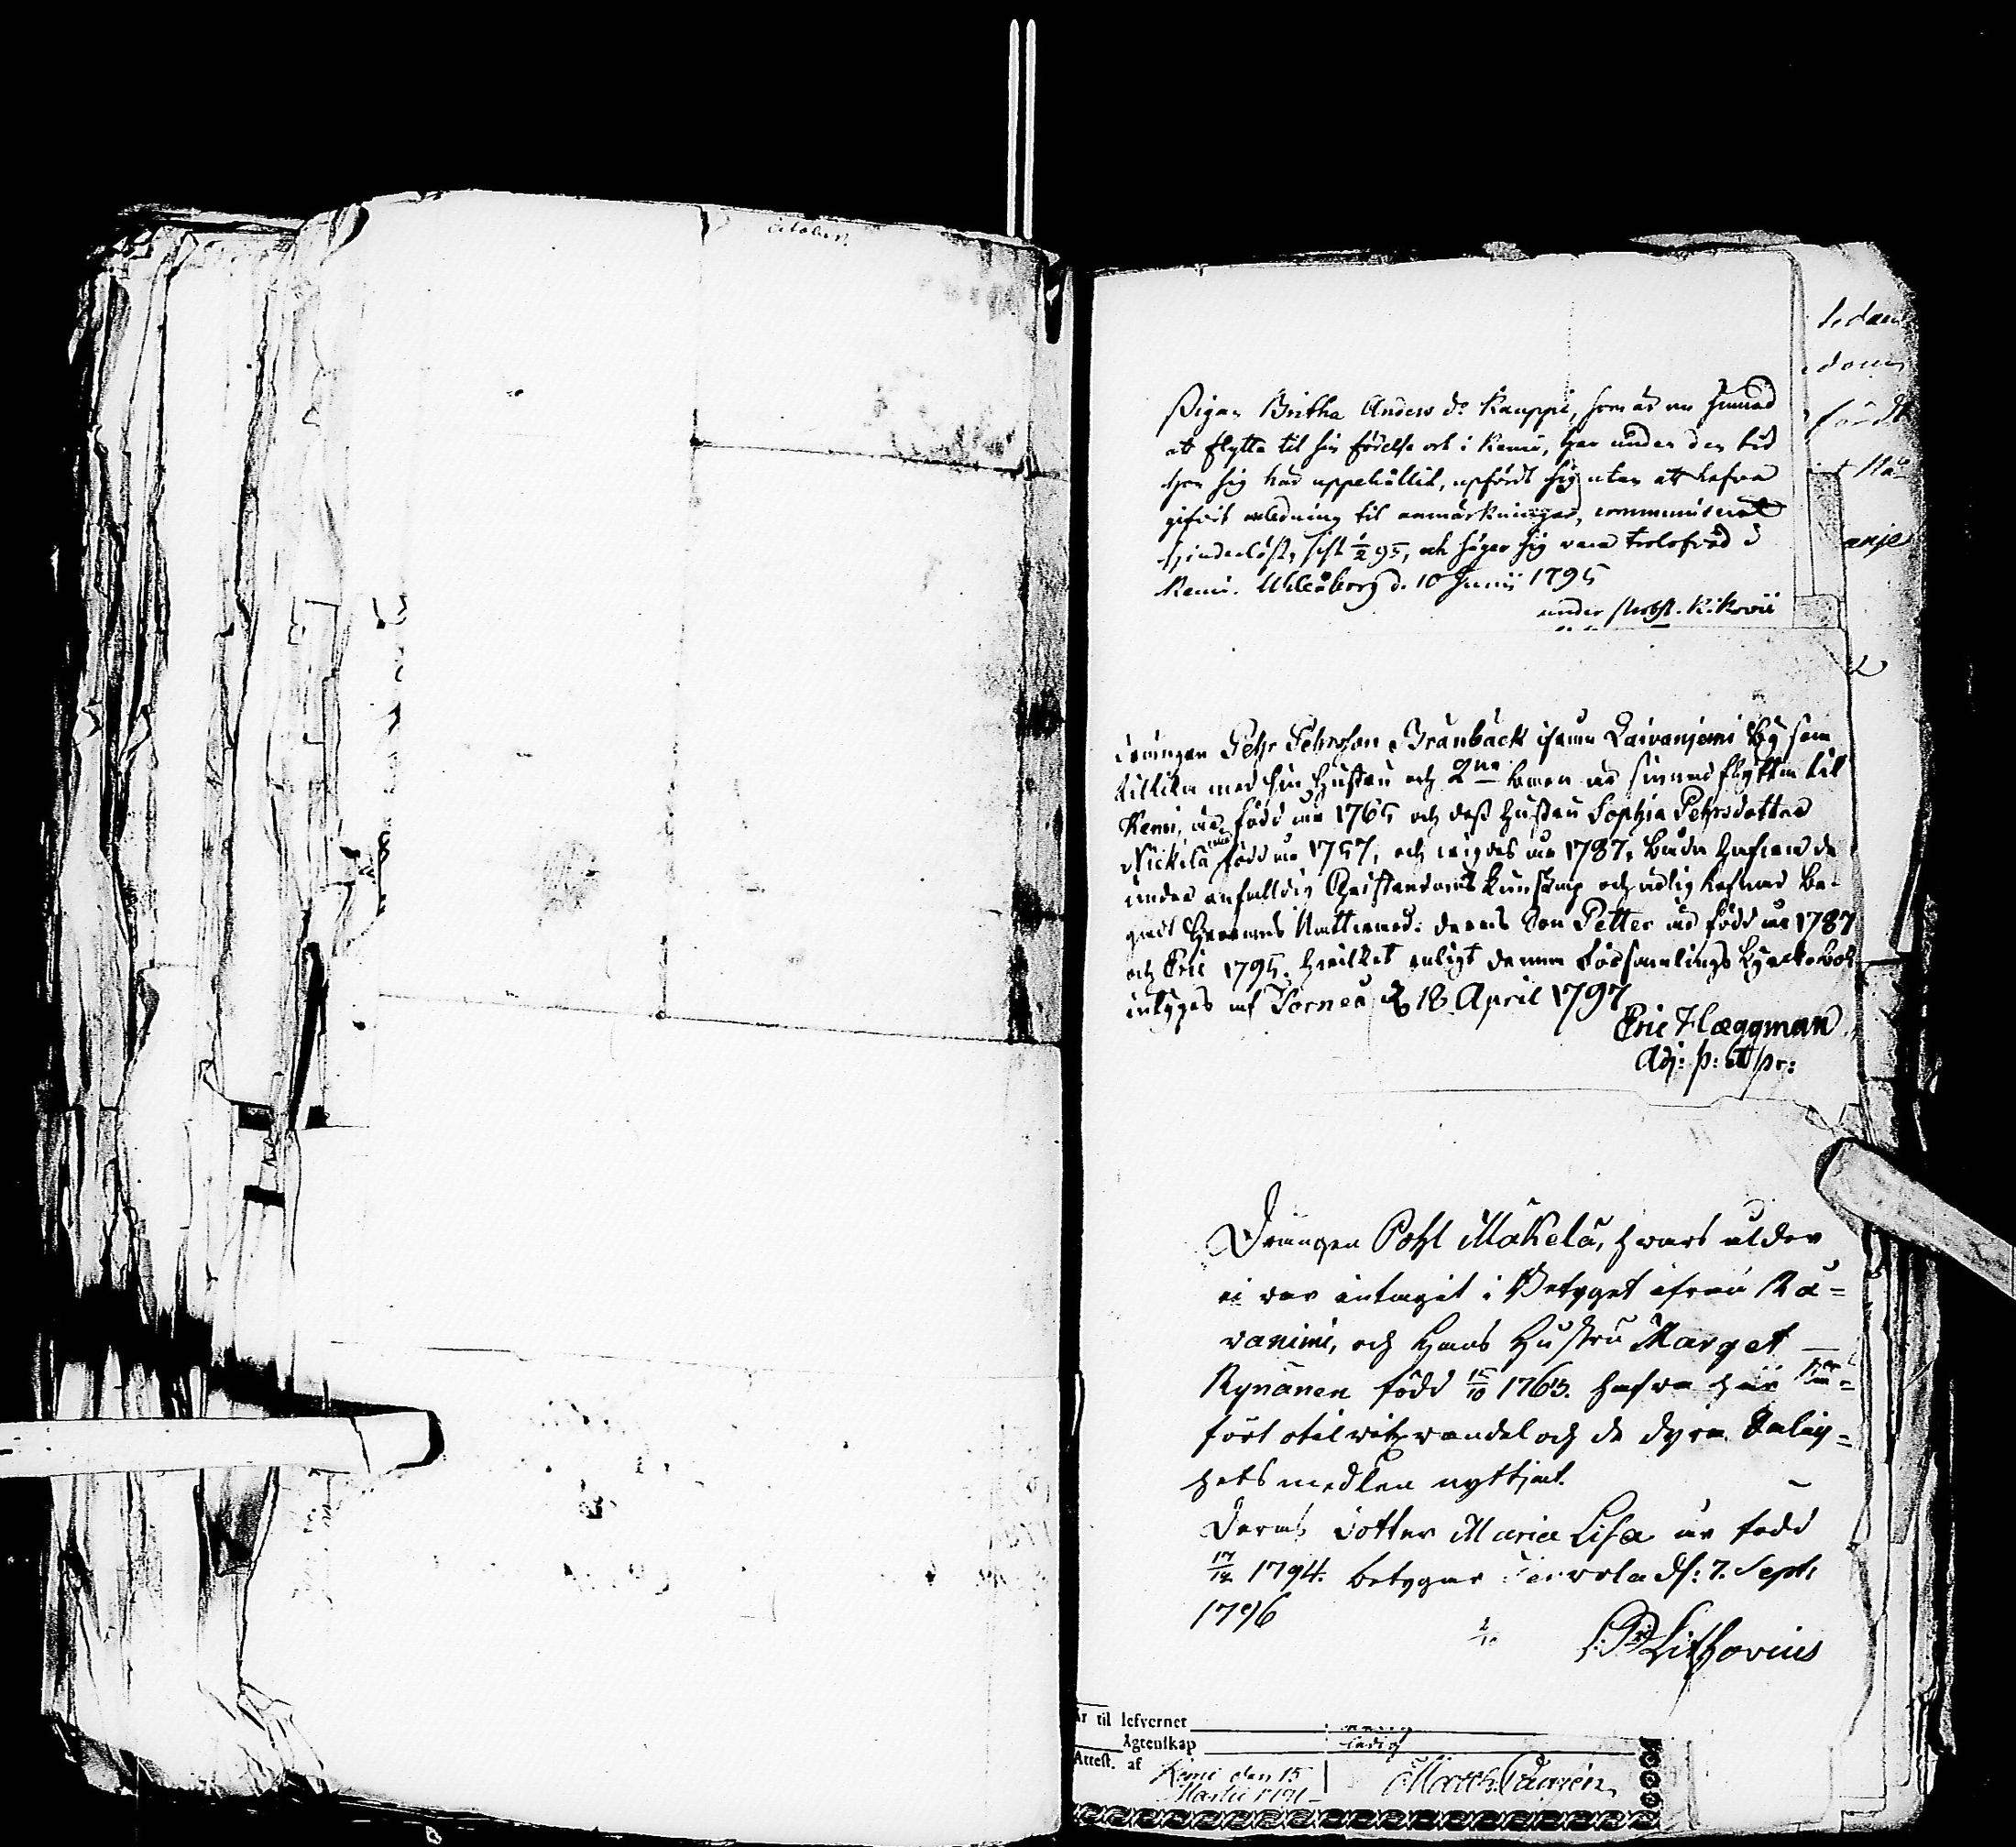 Pigan Britha Anders dr Kauppi, som är en sinnad
at flytta til sin födelse ort i Kemi, har under den tid
hon sig här uppehållit, upfördt sig utan at hafva
gifvit anledning til anmärkningar, communicerat
hinderlöst, sist 1/2 95, och säger sig vara trolofvad i
Kemi. Uhleåborg d. 10 Junii 1795
under
Drängen Pehr Pehrsson Branback ifrån Laivaniemi By som
tillika med sin Hustru och 2ne barn är sinnad flytta til
Kemi, är född åhr 1765 och dess Hustru Sophia Pehrsdotter
Nickilä född åhr 1757, och wigdes åhr 1787, båda hafwande
under enfalldig Christendoms kunskap och ärlig lefnad be-
gådt Herrans Nattvard. deras Son Petter är född åhr 1787
och Eric 1795. Hwilket enligt denna Församlings Kyrckobok
intygas af Torneå d 18 April 1797
Eric Hæggman
Adj: p:
Drängen Pohl Mäkelä, hwars ålder
ej var intagit i Betyget ifrån Ra-
vaniemi, och hans Hustru Marget
Rynänen född 15/10 1765. hafva här
fört otilvitt vandel och de dyra Salig-
hets medlen nyttjat.
Deras dotter Maria Lisa är född
17/12 1794. betygar Tervola d: 7. Sept:
1796
Lithovius
är til lefvernet
Ägtenskap ledig
Attest. af Kemi den 15
Martii